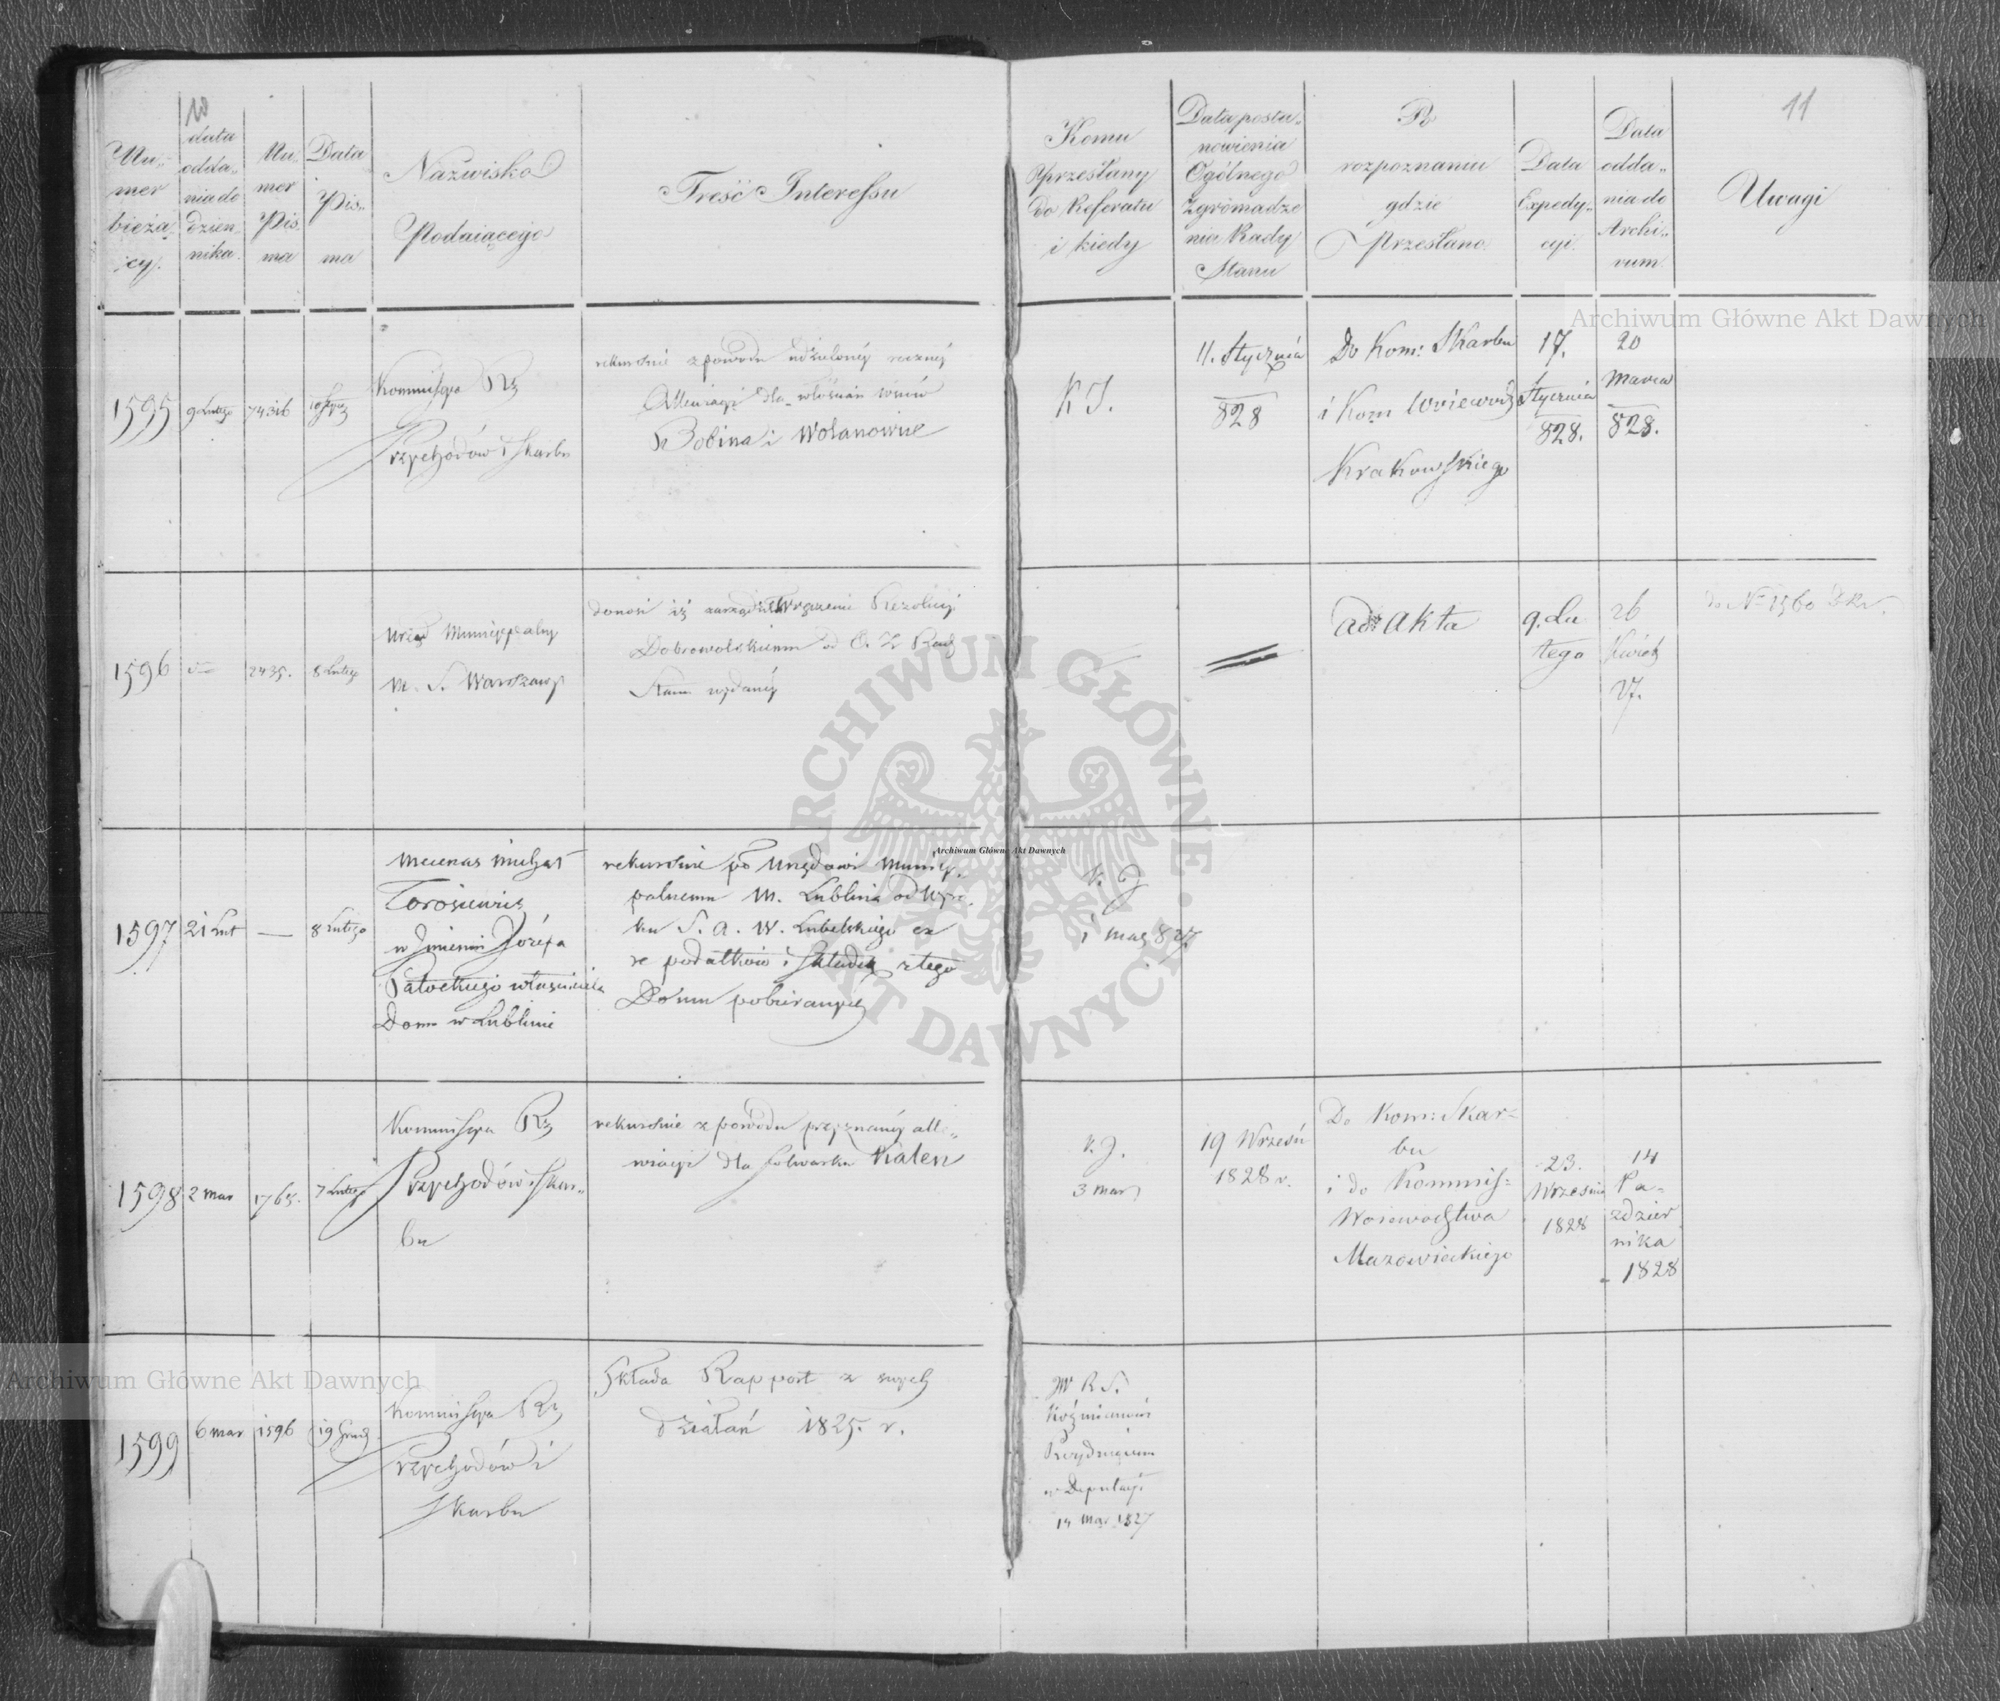 10
11
Nu-
mer
bieżą-
cy.
data
odda-
nia do
Dzien-
nika.
Nu-
mer
Pis-
ma
Data
Pis-
ma
Nazwisko
Podaiącego
Treść Interessu
Komu
Przesłany
Do Referatu
i kiedy
Data posta-
nowienia
Ogólnego
Zgromadze
nia Rady
Stanu
Po
rozpoznaniu
gdzie
Przesłano
Data
Expedy-
cyi.
Data
odda-
nia do
Archi-
vum
Uwagi
1595
9 Lutego
Kommissya Rz
Przychodów i Skarbu
rekursuie z powodu udzieloney
dla włościan wsiów
Bobina i Wolanowice
K J.
11. Stycznia
828
Do Kom: Skarbu
i Kom Woiewodz
Krakowskiego
17.
Stycznia
828.
20
Marca
828.
1596
2435.
8 Lutego
Urząd Municypalny
M. S. Warszawy
donosi iż Rezolucyi
Dobrowolskiemu od O. Z Rady
Stanu wydaney
ad Akta
9. Lu
tego
26
Kwiet
27.
Do No 1560
1597
21 Lut
—
8 Lutego
Mecenas Michał
Torosiewicz
w Imieniu Józefa
właściciela
Domu w Lublinie
rekursuie po Urzędowi Municy-
palnemu M. Lublina od
ku S. A. W. Lubelskiego
podatków i składek z tego
Domu pobieranych
K. J
1 Mar 827
1598
2 Mar
1765.
7 Lutego
Kommissya Rz
Przychodów i Skar-
bu
rekursuie z powodu przyznaney alle-
wiacyi dla folwarku Kalen
K. J.
3 Mar
19 Wrześn
1828 r.
Do Kom: Skar-
bu
i do Kommis-
Woiewodztwa
Mazowieckiego
23.
Wrzesnia
1828
14
Pa-
zdzier
nika
1828
1599
6 Mar
1596
19 Grud
Kommissya Rz
Przychodów i
Skarbu
Składa Rapport z swych
działań 1825. r.
JW R S.
Koźmianowi
Prezyduiącemu
w Deputacyi
14 Mar 1827
Archiwum Główne Akt Dawnych
Archiwum Główne Akt Dawnych
Archiwum Główne Akt Dawnych
ARCHIWUM GŁÓWNE AKT DAWNYCH